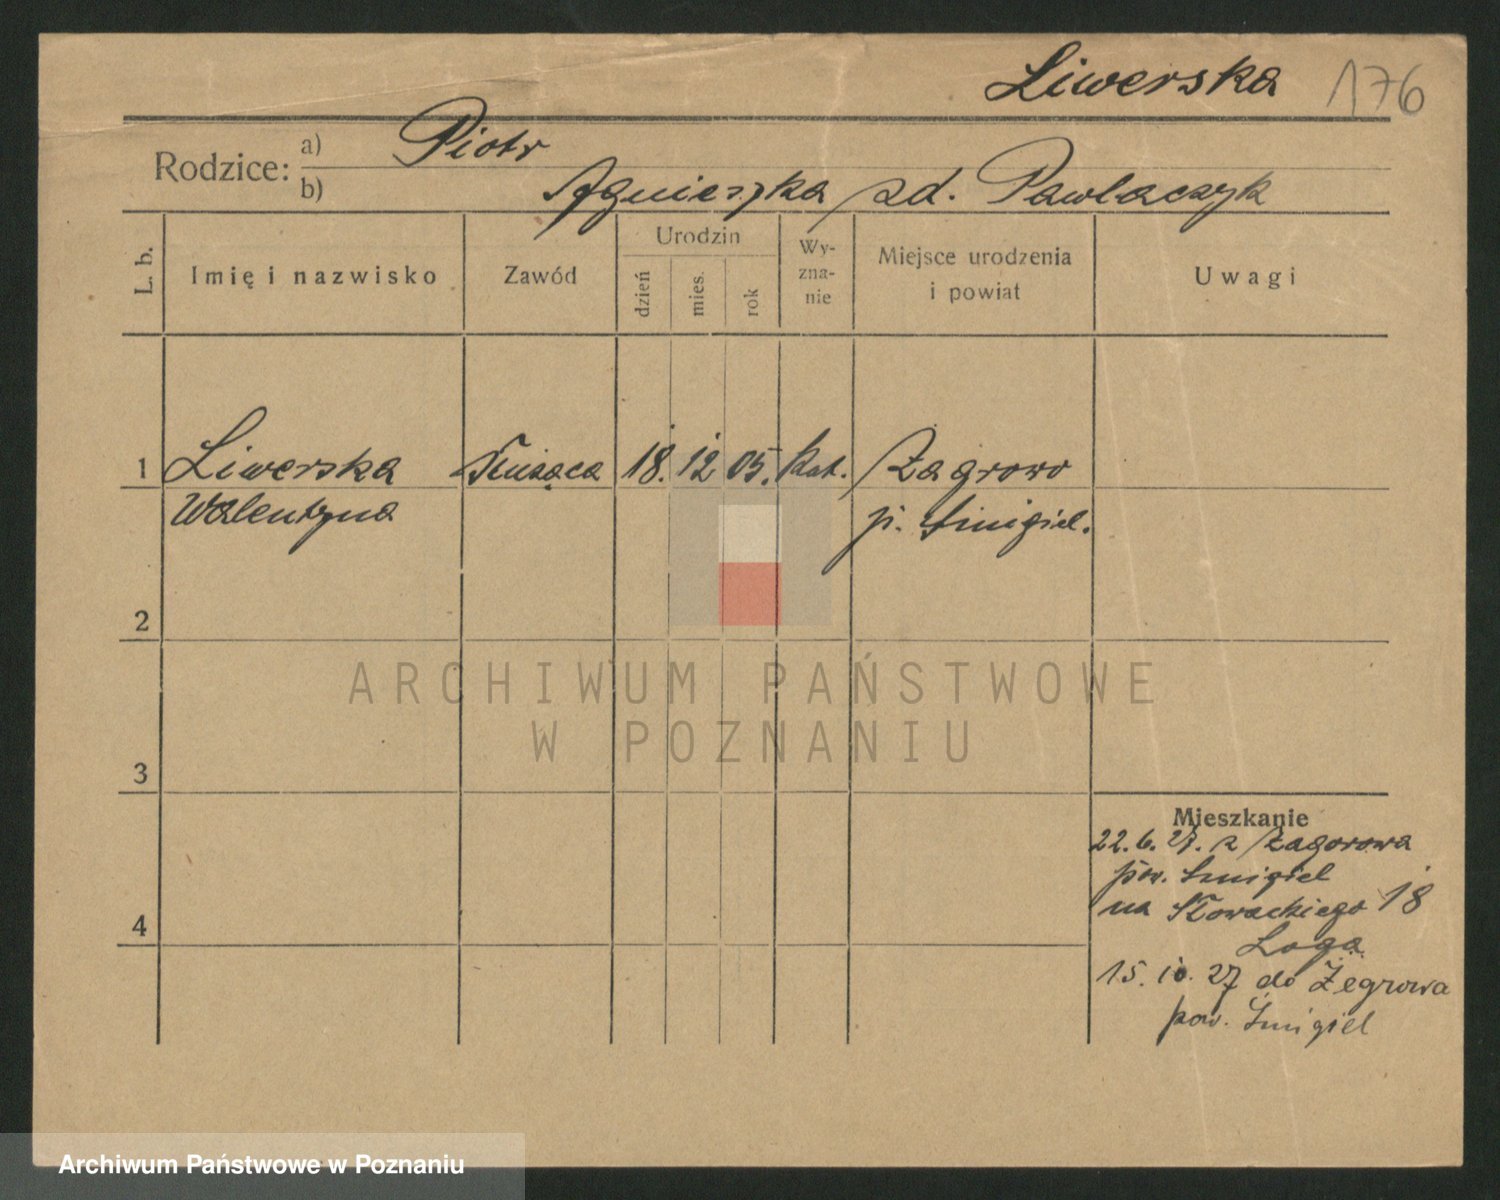 Liwerska 176
Rodzice: a) Piotr
b) Agnieszka zd. Pawlaczyk
L. b.
Imię i nazwisko
Zawód
Urodzin
dzień
mies.
rok
Wy-
zna-
nie
Miejsce urodzenia
i powiat
Uwagi
1 Liwerska Służąca 18. 12 05. Kat. Żagrowo
Walentyna p. Śmigiel.
2
ARCHIWUM PAŃSTWOWE
W POZNANIU
3
Mieszkanie
22. 6. 27. z Żagorowa
pow. Śmigiel
na Słowackiego 18
Loga
4
15. 10. 27 do Żegrowa
pow. Śmigiel
Archiwum Państwowe w Poznaniu